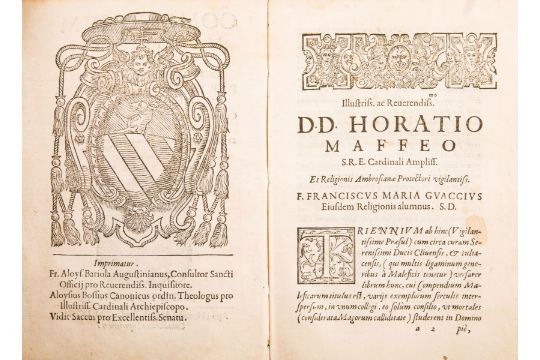 Imprimatur.
Fr. Aloyſ. Bariola Auguſtinianus, Conſultor Sancti
Officij pro Reuerendiſs. Inquiſitore.
Aloyſius Boſſius Canonicus ordin. Theologus pro
Illuſtriſſ. Cardinali Archiepiſcopo.
Vidit Saccus pro Excellentiſs. Senatu.
Illuſtriſſ. ac Reuerendiſſ.mo
D.D. HORATIO
MAFFEO
S.R.E. Cardinali Ampliſſ.
Et Religionis Ambroſianæ Protectori vigilantiſſ.
F. FRANCISCVS MARIA GVACCIVS
Eiuſdem Religionis alumnus. S.D.
TRIENNIVM ab hinc (Vigilan-
tiſsime Præſul) cum circa curam Se-
reniſsimi Ducis Cliuenſis, & Iulia-
cenſis, (qui multis ligaminum gene-
ribus à Maleficis tenetur) verſarer
librum hunc, cui (Compendium Ma-
leficarum titulus eſt, varijs exemplorum ferculis interſper-
ſum, in vnum collegi, eo ſolùm conſilio, vt mortales
(conſiderata Magorum calliditate) ſtuderent in Domino
a 2 piè,